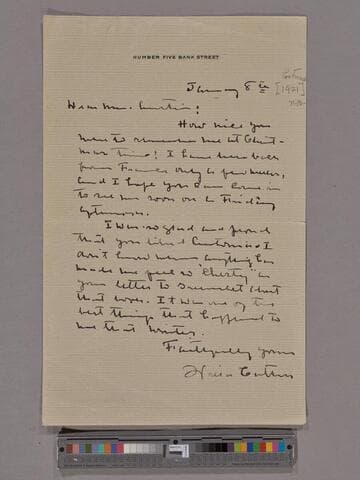 NUMBER FIVE BANK STREET
January 8th
[1921]
Dear Mr. Austin:
How nice you
were to remember me at Christ-
mas time! I have been back
from France only a few weeks,
and I hope you can come in
to see me soon on a Friday
afternoon.
I was so glad and proud
that you liked Antonia. I
don't know when anything has
made me feel so "chesty" as
your letter to Scribner about
that book. It was one of the
best things that happened to
me that winter.
Faithfully yours
Willa Cather